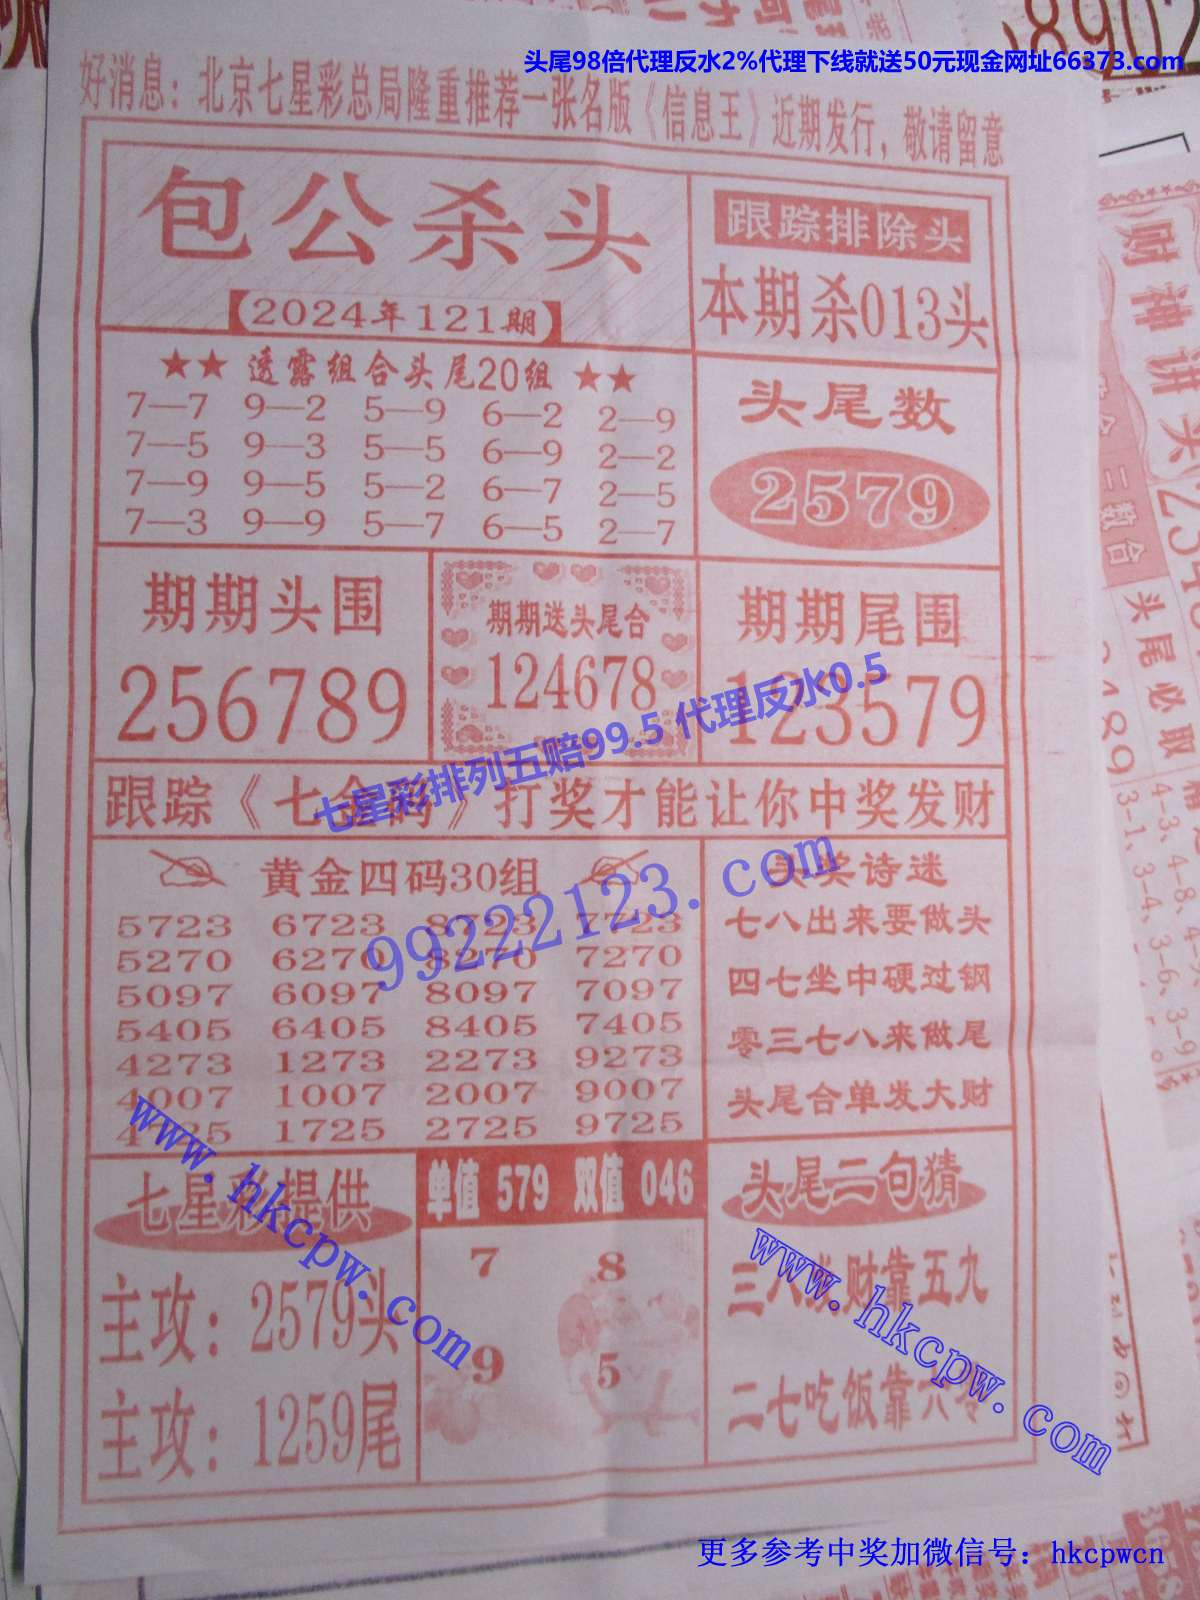 头尾98倍代理反水2%代理下线就送50元现金网址66373.com
好消息：北京七星彩总局隆重推荐一张名版《信息王》近期发行，敬请留意
包公杀头
【2024年121期】
跟踪排除头
本期杀013头
★★ 透露组合头尾20组 ★★
7—7 9—2 5—9 6—2 2—9
7—5 9—3 5—5 6—9 2—2
7—9 9—5 5—2 6—7 2—5
7—3 9—9 5—7 6—5 2—7
头尾数
2579
期期头围
256789
期期送头尾合
124678
期期尾围
123579
七星彩排列五赔99.5 代理反水0.5
跟踪《七金码》打奖才能让你中奖发财
99222123.com
黄金四码30组
5723 6723 8723 7723
5270 6270 8270 7270
5097 6097 8097 7097
5405 6405 8405 7405
4273 1273 2273 9273
4007 1007 2007 9007
1725 2725 9725
头奖诗迷
七八出来要做头
四七坐中硬过钢
零三七八来做尾
头尾合单发大财
www.hkcpw.com
七星彩提供
主攻：2579头
主攻：1259尾
单值 579 双值 046
7 8
9 5
头尾二句猜
三八发财靠五九
二七吃饭靠六零
www.hkcpw.com
更多参考中奖加微信号：hkcpwcn
8902
财神饼
二数合
头尾必取